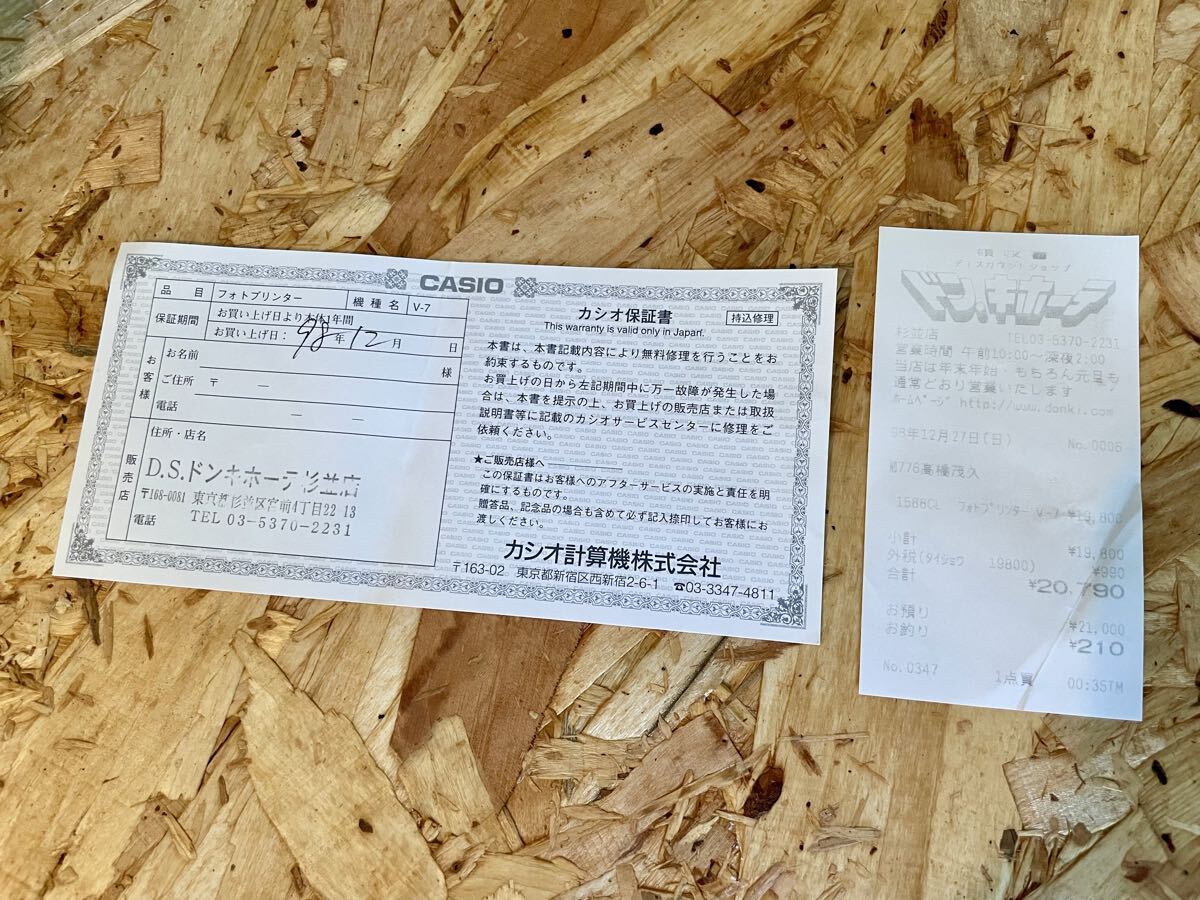 CASIO
品目 フォトプリンター 機種名 V-7
保証期間 お買い上げ日より本体1年間
お買い上げ日: 98年 12月 日
お客様 お名前 様
ご住所 〒 —
電話 — —
販売店 住所・店名
D.S.ドンキホーテ杉並店
〒168-0081 東京都杉並区宮前4丁目22-13
電話 TEL 03-5370-2231
カシオ保証書 持込修理
This warranty is valid only in Japan.
本書は、本書記載内容により無料修理を行うことをお
約束するものです。
お買上げの日から左記期間中に万一故障が発生した場
合は、本書を提示の上、お買上げの販売店または取扱
説明書等に記載のカシオサービスセンターに修理をご
依頼ください。
★ご販売店様へ
この保証書はお客様へのアフターサービスの実施と責任を明
確にするものです。
贈答品、記念品の場合も含めて必ず記入捺印してお客様にお
渡しください。
カシオ計算機株式会社
〒163-02 東京都新宿区西新宿2-6-1 ☎03-3347-4811
領収書
ディスカウントショップ
ドン.キホーテ
杉並店 TEL03-5370-2231
営業時間 午前10:00〜深夜2:00
当店は年末年始・もちろん元旦も
通常どおり営業いたします
ホームページ http://www.donki.com
98年12月27日(日) No.0006
776髙橋茂久
フォトプリンター V-7 ¥19,800
小計 ¥19,800
外税(タイショウ 19800) ¥990
合計 ¥20,790
お預り ¥21,000
お釣り ¥210
No.0347 1点買 00:35TM